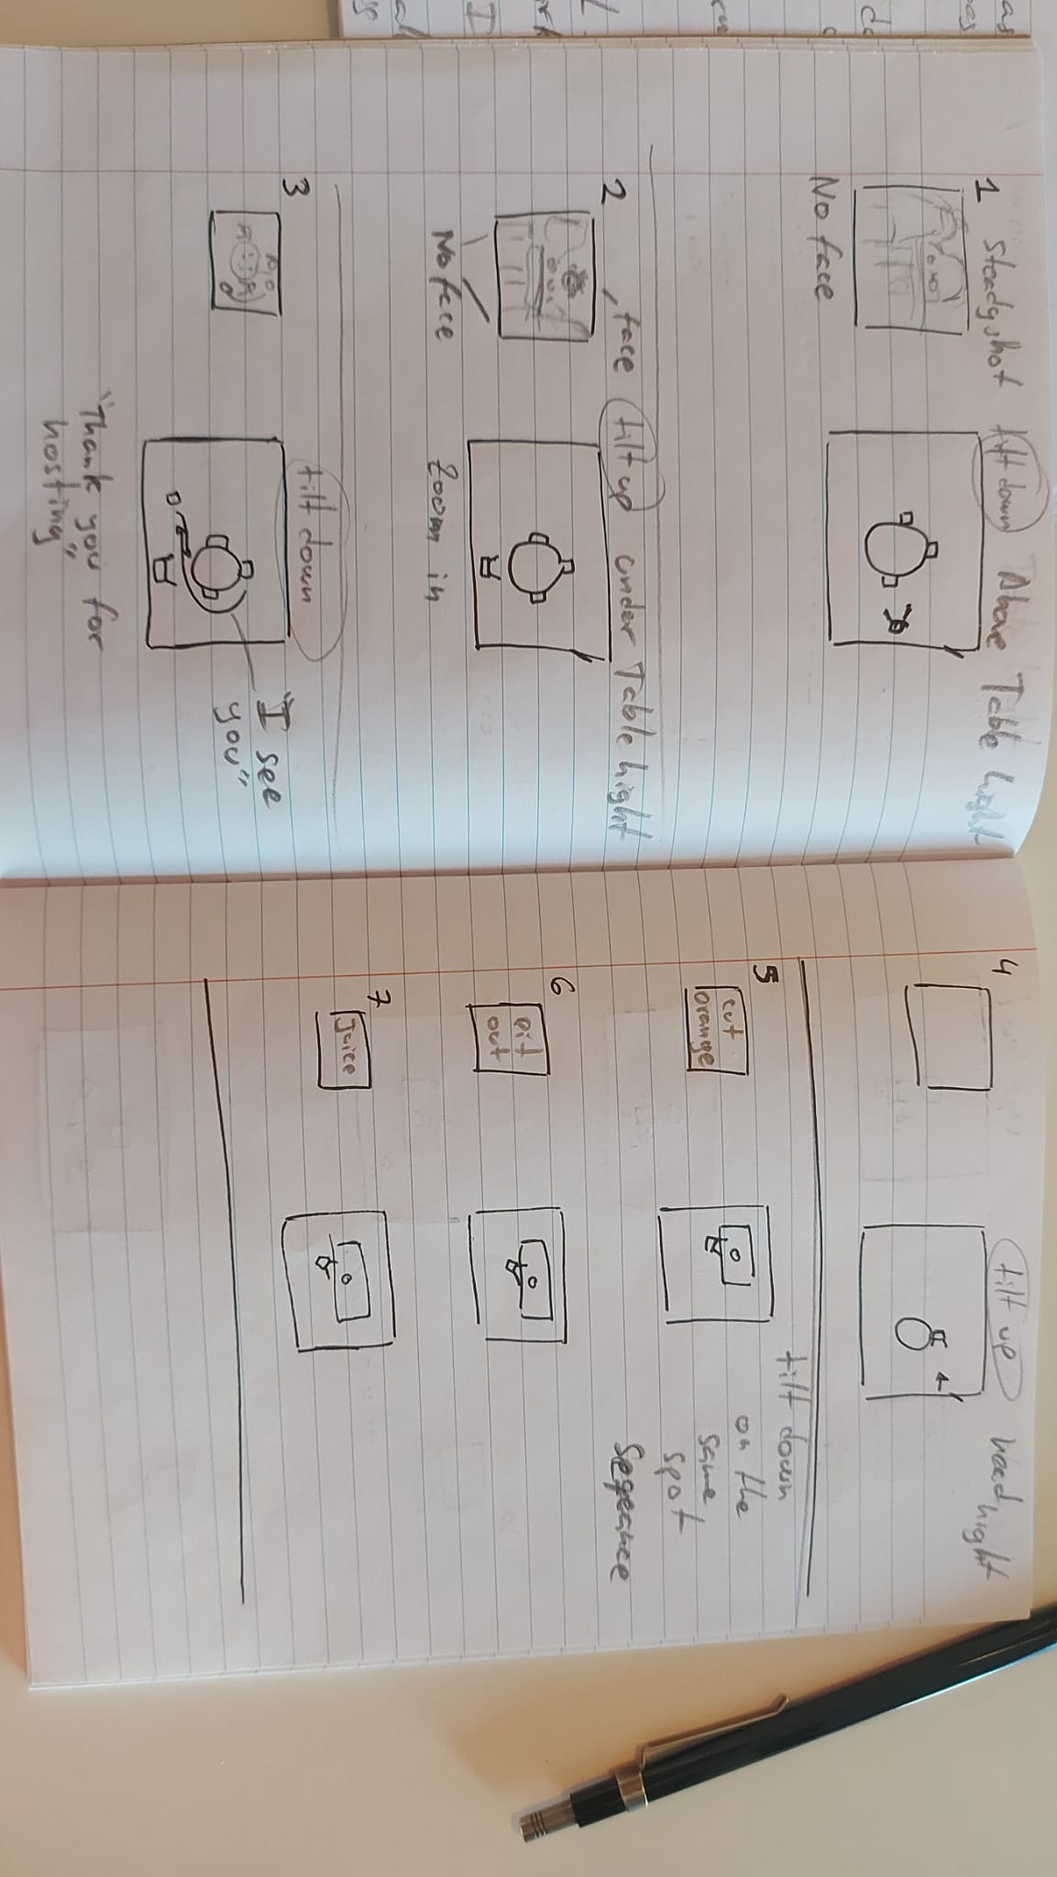 1 Steadyshot tilt down Above Table hight
No face
2 face tilt up under Table hight
No face Zoom in
3 tilt down
"I see
you"
"Thank you for
hosting"
4 tilt up head hight
tilt down
5 cut
orange
on the
same
spot
Seqeance
6 Pit
out
7 Juice